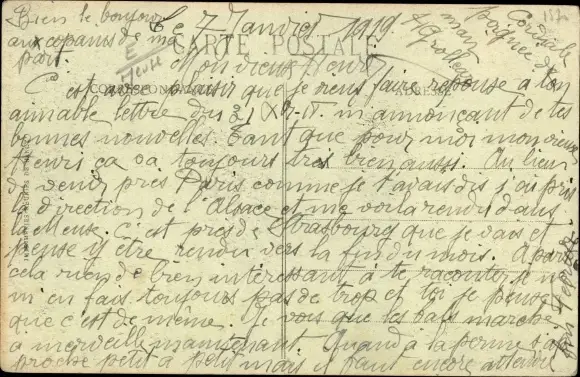 Bien le bonjour
aux copains de ma
part.
Le 7 Janvier 1919.
CARTE POSTALE
Cordiale
poignée de
main
CORRESPONDANCE
ADRESSE
Mon vieux Henri
C'est avec plaisir que je viens faire réponse à ton
aimable lettre du m'annonçant de tes
bonnes nouvelles. Tant que pour moi mon vieux
Henri ça va toujours très bien aussi. Au lieu
de venir près Paris comme je t'avais dis j'ai pris
la direction de l'Alsace et me voilà rendu dans
la Meuse. C'est près de Strasbourg que je vais et
pense y être rendu vers la fin du mois. A part
cela rien de bien intéressant à te raconter je ne
m'en fais toujours pas de trop et toi je pense
que c'est de même. Je vois que les bals marche
à merveille maintenant. Quand à la perme s'a
proche petit à petit mais il faut encore attendre